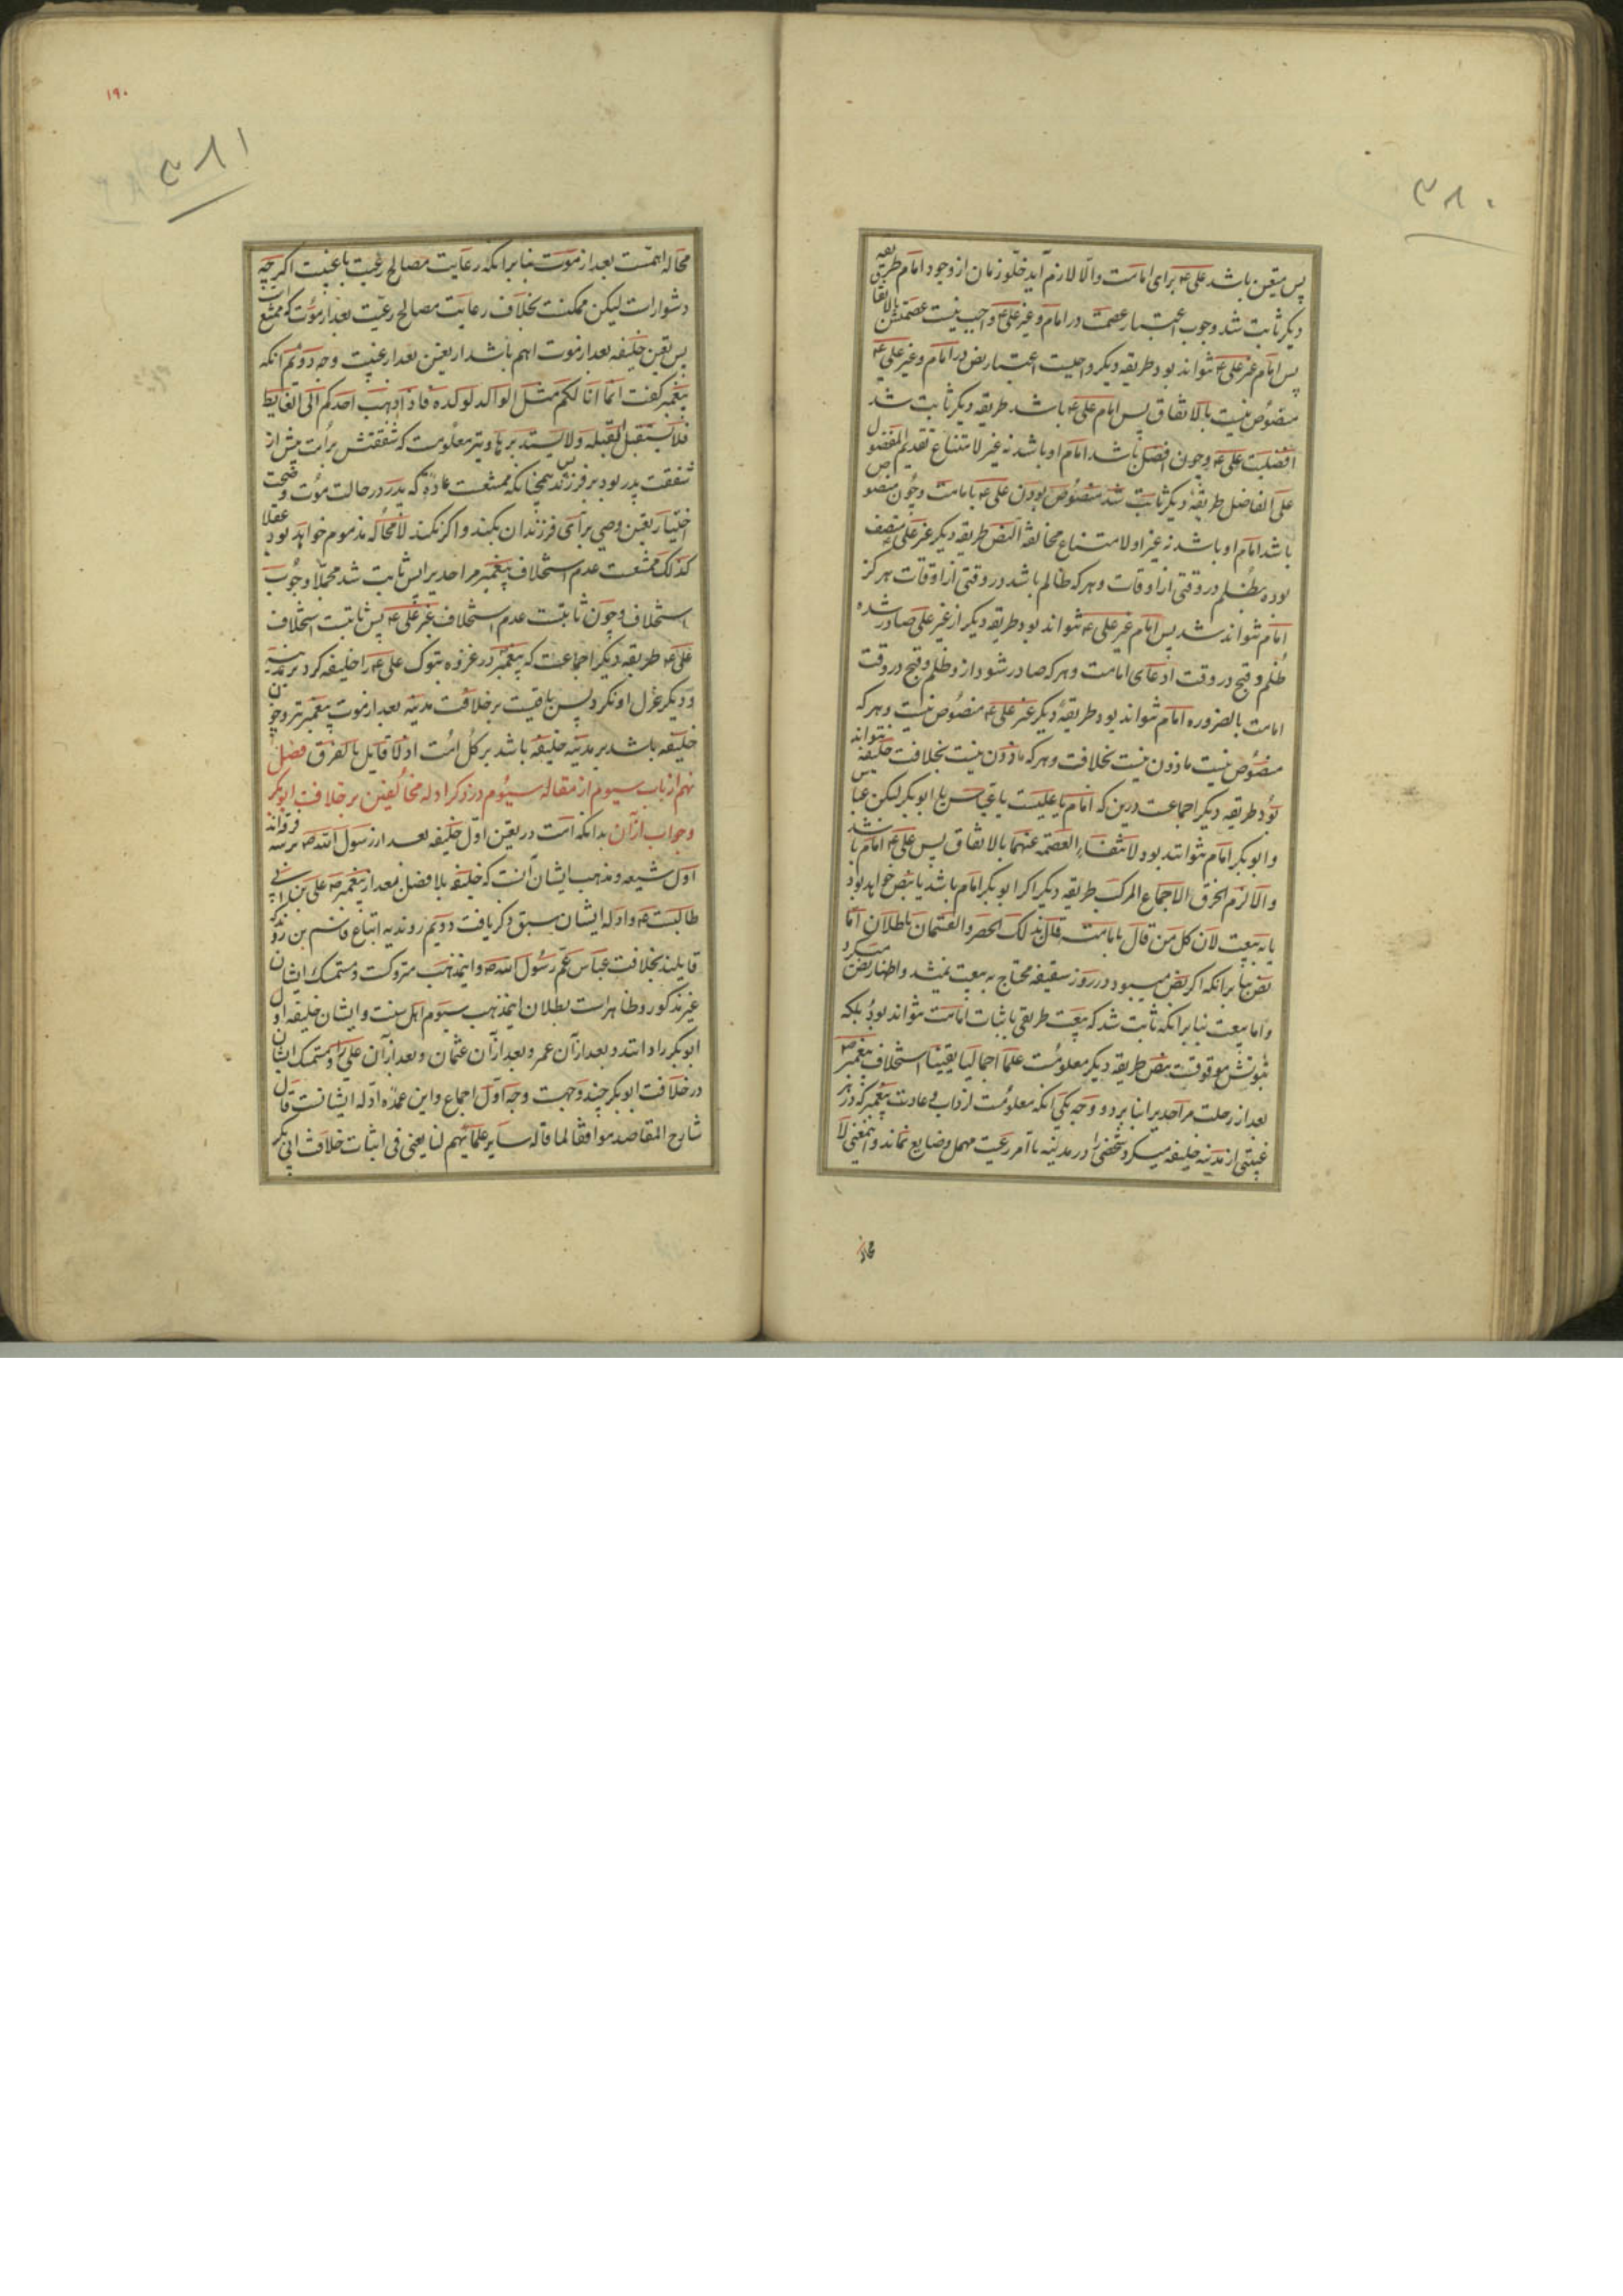 ۳۸۰
پس متعین باشد علی ع برای امامت والّا لازم آید خلّو زمان از وجود امام طریقه
دیکر ثابت شد وجوب اعتبار عصمت در امام و غیر علی ع واجب نیست عصمتش بالاتفا
پس امام غیر علی ع نتواند بود طریقه دیکر واجبست اعتبار نص در امام و غیر علی ع
منصوص نیست بالاتفاق پس امام علی ع باشد طریقه دیکر ثابت شد
افضلیت علی ع و چون افضل باشد امام او باشد نه غیر لامتناع تقدیم المفضول
علی الفاضل طریقه دیکر ثابت شد منصوص بودن علی ع بامامت و چون منصوص
باشد امام او باشد نه غیر او لامتناع مخالفة النص طریقه دیکر غیر علی ع متصف
بوده بظلم در وقتی از اوقات و هر که ظالم باشد در وقتی از اوقات هرکز
امام نتواند شد پس امام غیر علی ع نتواند بود طریقه دیکر از غیر علی صادر شده
ظلم و قبح در وقت ادعای امامت و هر که صادر شود از و ظلم و قبح در وقت
امامت بالضروره امام نتواند بود طریقه دیکر غیر علی ع منصوص نیست و هر که
منصوص نیست ماذون نیست بخلافت و هر که ماذون نیست بخلافت خلیفه نتواند
بود طریقه دیکر اجماعست درین که امام یا علیست یا عباس یا ابوبکر لیکن عباس
و ابوبکر امام نتوانند بود لانتفاء العصمة عنهما بالاتفاق پس علی ع امام باشد
والّا لزم الخرق الاجماع المرکب طریقه دیکر اکر ابوبکر امام باشد یا بنص خواهد بود
یا به بیعت لان کل من قال بامامته قال بذلک الحصر والقسمان باطلان اما
نص بنا برانکه اکر نص میبود در روز سقیفه محتاج به بیعت نمیشد و اظهار نص میکرد
و اما بیعت بنا برانکه ثابت شد که بیعت طریقی باثبات امامت نتواند بود بلکه
ثبوتش موقوفست بنص طریقه دیکر معلومست علماً اجمالیاً یقیناً استخلاف پیغمبر ص
بعد از رحلت مر احدیرا بنا بر دو وجه یکی انکه معلومست از داب و عادت پیغمبر که در هر
غیبتی از مدینه خلیفه میکرد شخصی را در مدینه تا امر رعیت مهمل و ضایع نماند و اینمعنی لا
محاله
۱۹۰
۳۸۱
محاله اهمّست بعد از موت بنا برانکه رعایت مصالح رعیت با غیبت اکر چه
دشوار است لیکن ممکنست بخلاف رعایت مصالح رعیت بعد از موت که ممتنع است
پس تعین خلیفه بعد از موت اهم باشد از تعین بعد از غیبت وجه دویم انکه
پیغمبر کفت انما انا لکم مثل الوالد لولده فاذا ذهب احدکم الی الغایط
فلا یستقبل القبله ولا یستدبرها و نیز معلومست که شفقتش بر امت بیش از
شفقت پدر بود بر فرزند پس همچنانکه ممتنعست عادة که پدر در حالت موت و صحت
اختیار تعین وصی برای فرزندان نکند و اکر نکند لامحاله مذموم خواهد بود عقلا
کذلک ممتنعست عدم استخلاف پیغمبر مر احدیرا پس ثابت شد مجملا وجوب
استخلاف و چون ثابتست عدم استخلاف غیر علی ع پس ثابتست استخلاف
علی ع طریقه دیکر اجماعست که پیغمبر در غزوه تبوک علی ع را خلیفه کرد بر مدینه
و دیکر عزل او نکرد پس باقیست بر خلافت مدینه بعد از موت پیغمبر نیز و چون
خلیفه باشد بر مدینه خلیفه باشد بر کل امت اذ لا قایل بالفرق فصل
نهم از باب سیوم از مقاله سیوم در ذکر ادله مخالفین بر خلافت ابوبکر
و جواب از آن بدانکه امت در تعین اوّل خلیفه بعد از رسول الله ص بر سه فرقه‌اند
اول شیعه و مذهب ایشان آنست که خلیفه بلا فصل بعد از پیغمبر ص علی بن ابی
طالبست ع و ادله ایشان سبق ذکر یافت دویم روندیه اتباع قاسم بن روند که
قایلند بخلافت عباس عمّ رسول الله ص و اینمذهب متروکست و متمسک ایشان
غیر مذکور و ظاهر است بطلان اینمذهب سیوم اهل سنت و ایشان خلیفه اول
ابوبکر را دانند و بعد از آن عمر و بعد از آن عثمان و بعد از آن علی را و متمسک ایشان
در خلافت ابوبکر چند وجهست وجه اوّل اجماع و این عمده ادله ایشانست قال
شارح المقاصد موافقا لما قاله سایر علمائهم لنا یعنی فی اثبات خلافة ابی بکر